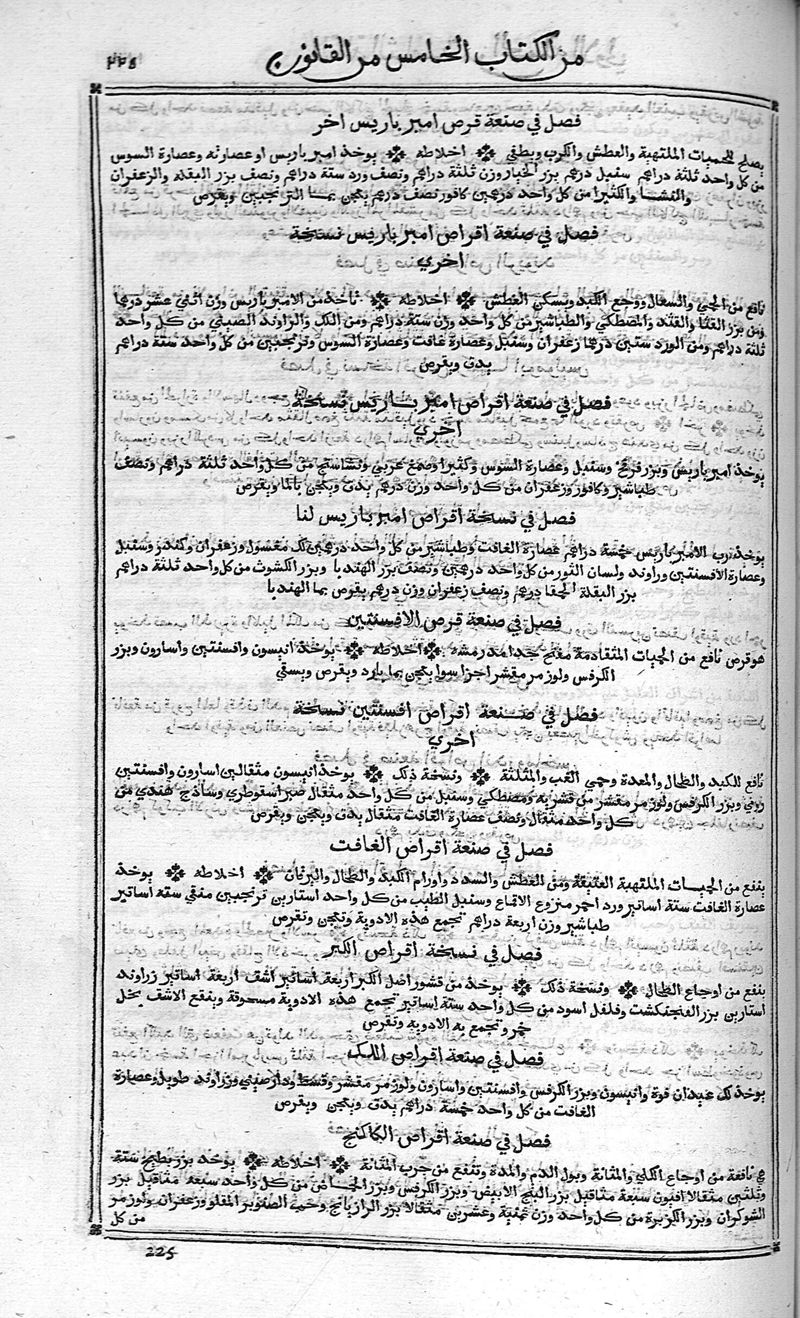 من الكتاب الخامس من القانون
٢٢٥
فصل في صنعة قرص امير باريس اخر
يصلح للحميات الملتهبة والعطش والكرب ويطفي ❊ اخلاطه ❊ يوخذ امير باريس او عصارته وعصارة السوس
من كل واحد ثلثة دراهم سنبل درهم بزر الخيار وزن ثلثة دراهم ونصف ورد ستة دراهم ونصف بزر البقله والزعفران
والنشا والكثيرا من كل واحد درهمين كافور نصف درهم يعجن بما الترنجبين ويقرص
فصل في صنعة اقراص امير باريس نسخة
اخري
نافع من الحمي والسعال ووجع الكبد ويسكن العطش ❊ اخلاطه ❊ تاخذ من الامير باريس وزن اثني عشر درهما
ومن بزر القثا والقثد والمصطكي والطباشير من كل واحد وزن ستة دراهم ومن اللك والراوند الصيني من كل واحد
ثلثة دراهم ومن الورد ستين درهما زعفران وسنبل وعصارة غافت وعصارة السوس وترنجبين من كل واحد ستة دراهم
يدق ويقرص
فصل في صنعة اقراص امير باريس نسخة
اخري
يوخذ امير باريس وبزر قرع وسنبل وعصارة السوس وكثيرا وصمغ عربي ونشاستج من كل واحد ثلثة دراهم ونصف
طباشير وكافور وزعفران من كل واحد وزن درهم يدق ويعجن بالما ويقرص
فصل في نسخة اقراص امير باريس لنا
يوخذ رب الامير باريس خمسة دراهم عصارة الغافت وطباشير من كل واحد درهمين لك مغسول وزعفران وكندر وسنبل
وعصارة الافسنتين وراوند ولسان الثور من كل واحد درهمين ونصف بزر الهندبا وبزر الكشوث من كل واحد ثلثة دراهم
بزر البقلة الحمقا درهم ونصف زعفران وزن درهم يقرص بما الهندبا
فصل في صنعة قرص الافسنتين
هو قرص نافع من الحميات المتقادمة مفتح جدا ❊ اخلاطه ❊ يوخذ انيسون وافسنتين واسارون وبزر
الكرفس ولوز مر مقشر اجزا سوا يعجن بما بارد ويقرص ويسقي
فصل في صنعة اقراص افسنتين نسخة
اخري
نافع للكبد والطحال والمعدة وحمي الغب والمثلثة ❊ ونسخة ذلك ❊ يوخذ انيسون مثقالين اسارون وافسنتين
رومي وبزر الكرفس ولوز مر مقشر من قشريه ومصطكي وسنبل من كل واحد مثقال صبر اسقوطري وساذج هندي من
كل واحد مثقال ونصف عصارة الغافت مثقال يدق ويعجن ويقرص
فصل في صنعة اقراص الغافت
ينفع من الحميات الملتهبة العتيقة ومن العطش والسدد واورام الكبد والطحال واليرقان ❊ اخلاطه ❊ يوخذ
عصارة الغافت ستة اساتير ورد احمر منزوع الاقماع وسنبل الطيب من كل واحد استارين ترنجبين منقي ستة اساتير
طباشير وزن اربعة دراهم تجمع هذه الادوية وتعجن وتقرص
فصل في نسخة اقراص الكبر
ينفع من اوجاع الطحال ❊ ونسخة ذلك ❊ يوخذ من قشور اصل الكبر اربعة اساتير اشق اربعة اساتير زراوند
استارين بزر الفنجنكشت وفلفل اسود من كل واحد ستة اساتير تجمع هذه الادوية مسحوقة وينقع الاشق بخل
خمر وتجمع به الادوية وتقرص
فصل في صنعة اقراص اللك
يوخذ لك عيدان فوة وانيسون وبزر الكرفس وافسنتين واسارون ولوز مر مقشر وقسط ودار صيني وزراوند طويل وعصارة
الغافت من كل واحد خمسة دراهم يدق ويعجن ويقرص
فصل في صنعة اقراص الكاكنج
هي نافعة من اوجاع الكلي والمثانة وبول الدم والمدة وتنفع من جرب المثانة ❊ اخلاطه ❊ يوخذ بزر بطيخ ستة
وثلثين مثقالا افيون سبعة مثاقيل بزر البنج الابيض وبزر الكرفس وبزر الحماض من كل واحد سبعة مثاقيل بزر
الشوكران وبزر الكزبرة من كل واحد وزن ثمنية وعشرين مثقالا بزر الرازيانج وحب الصنوبر المقلو وزعفران ولوز مر
من كل
225